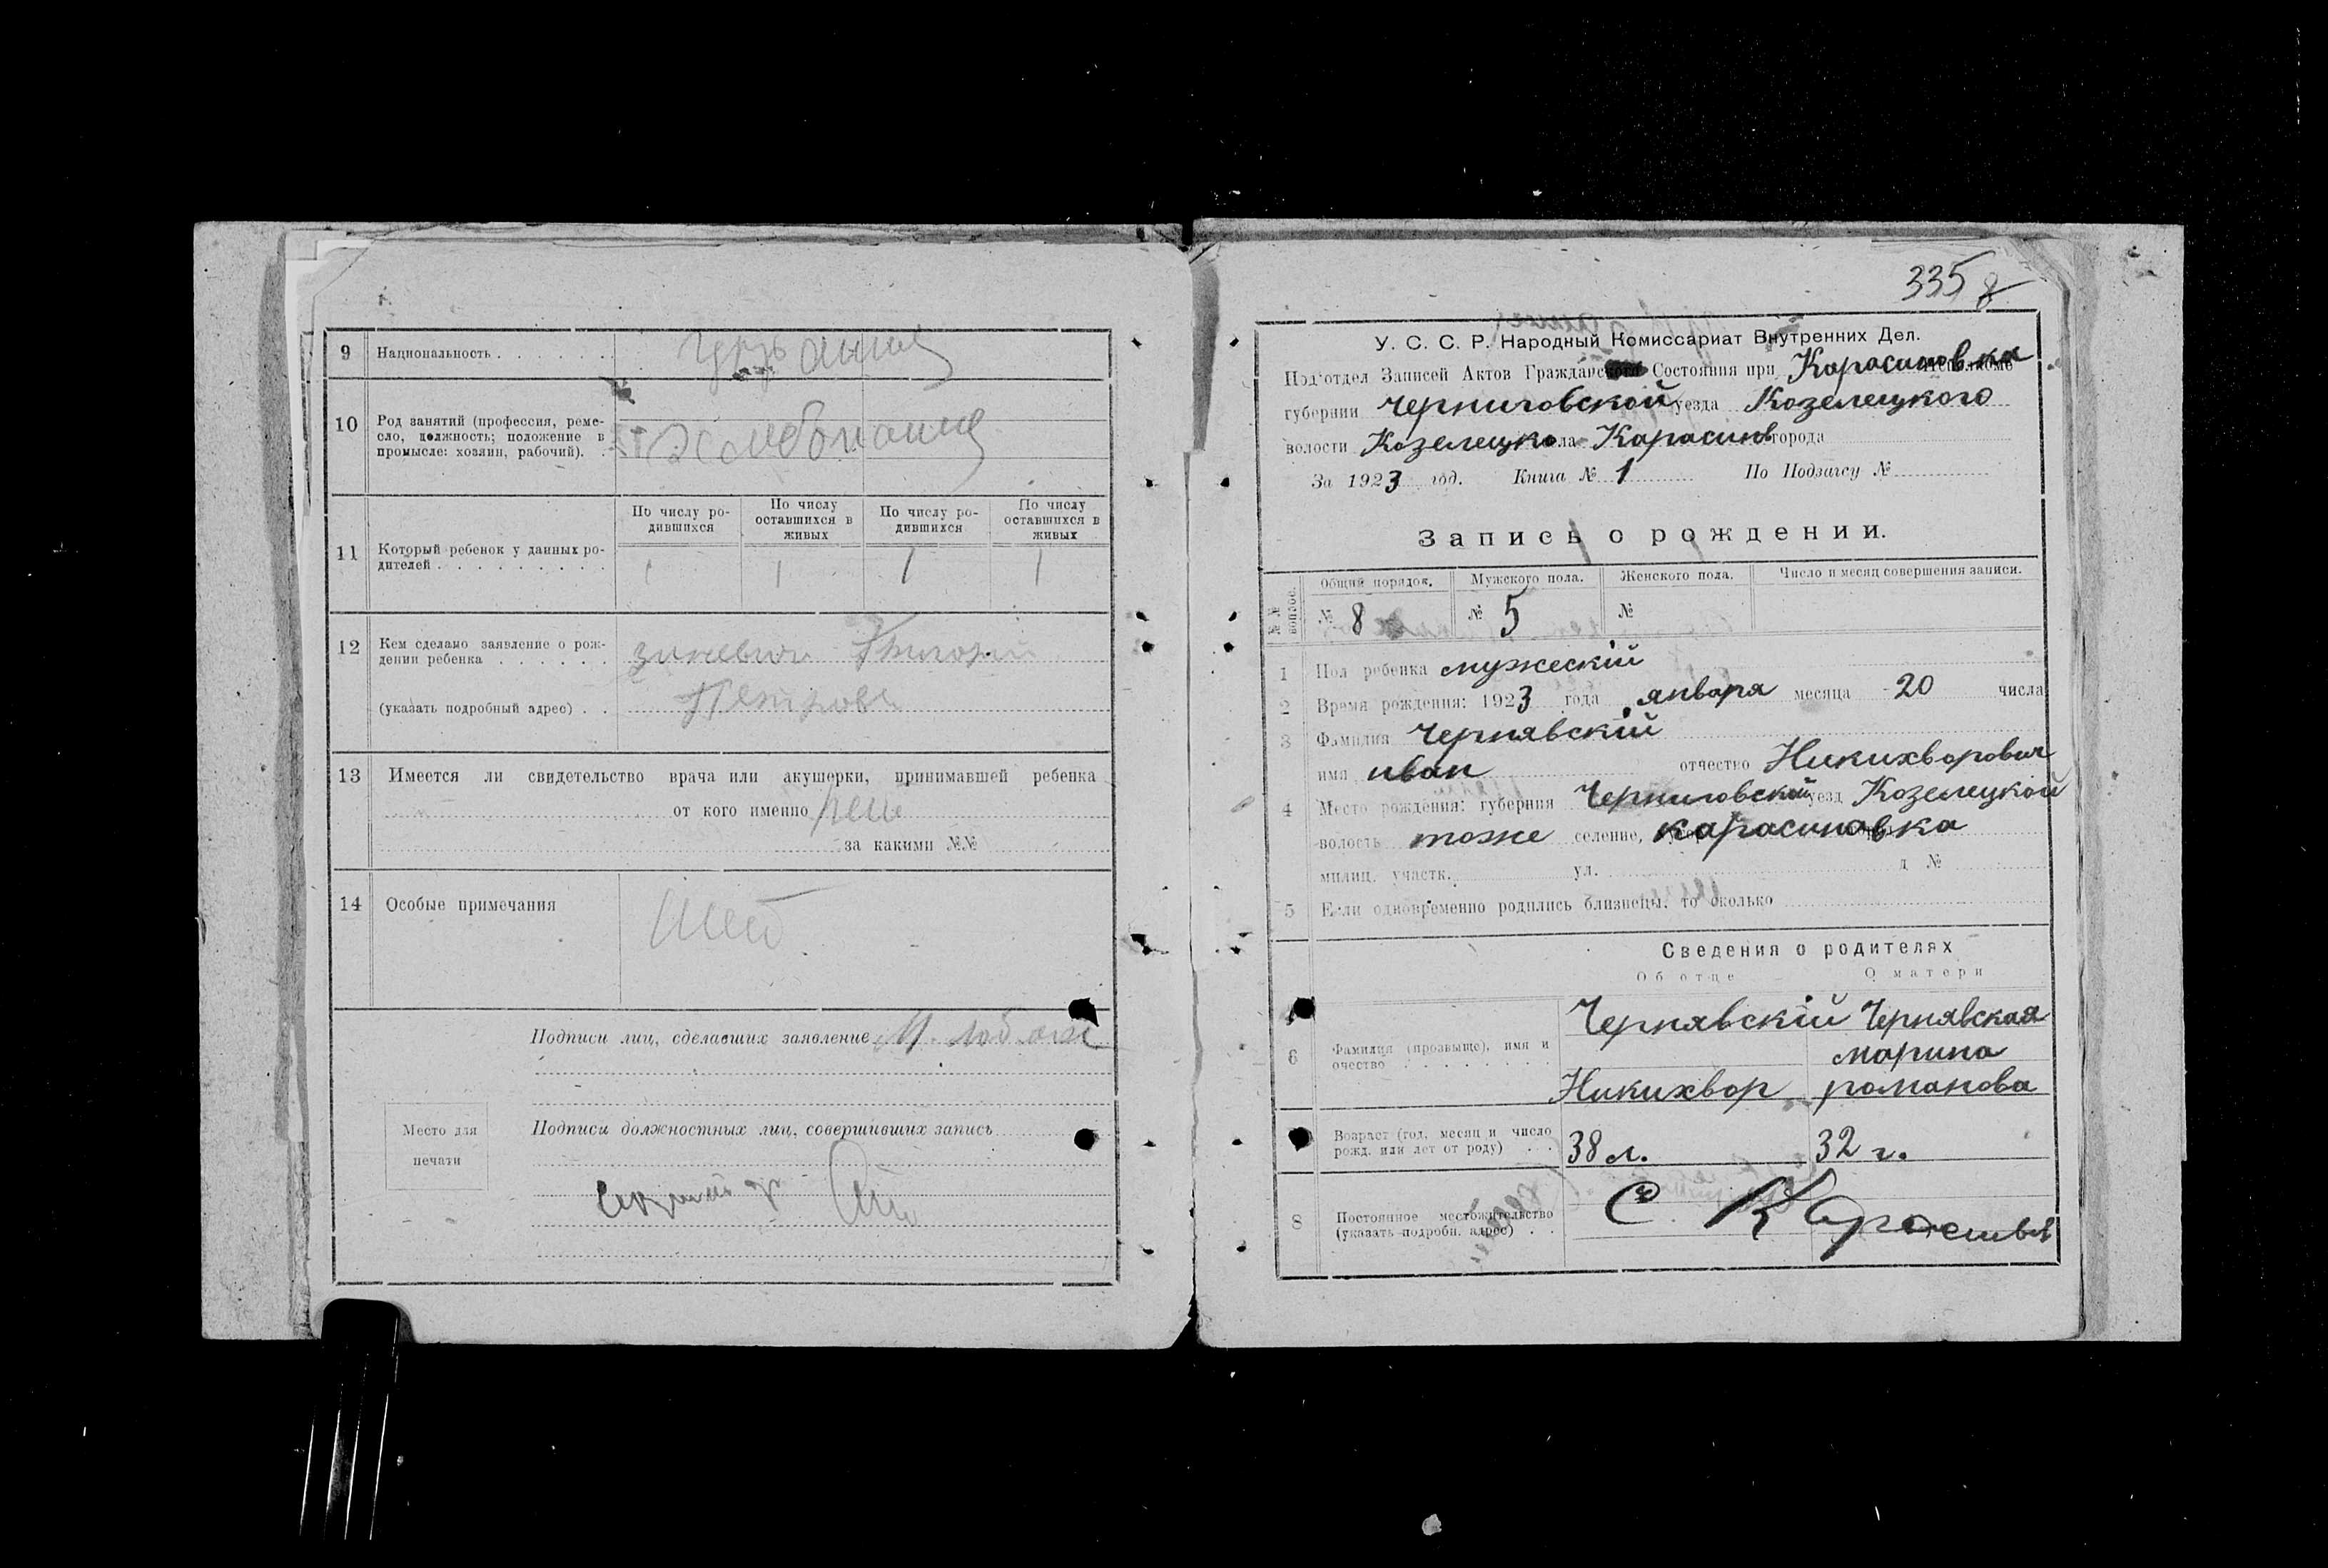 9 Национальность
10 Род занятий (профессия, реме-
сло, должность; положение в
промысле: хозяин, рабочий).
11 Который ребенок у данных ро-
дителей
По числу ро-
дившихся
По числу
оставшихся в
живых
По числу ро-
дившихся
По числу
оставшихся в
живых
1 1 1 1
12 Кем сделано заявление о рож-
дении ребенка
(указать подробный адрес)
13 Имеется ли свидетельство врача или акушерки, принимавшей ребенка
от кого именно
за какими №№
14 Особые примечания
Подписи лиц, сделавших заявление
Место для
печати
Подписи должностных лиц, совершивших запись
335 8
У. С. С. Р. Народный Комиссариат Внутренних Дел.
Под'отдел Записей Актов Гражданск Состояния при Карасиновка
губернии Черниговской уезда Козелецкого
волости Козелецко ла Карасинов города
За 1923 год. Книга № 1 По Подзагсу №
Запись о рождении.
№№ вопрос.
Общий порядок. Мужского пола. Женского пола. Число и месяц совершения записи.
№ 8 № 5 №
1 Пол ребенка мужескій
2 Время рождения: 1923 года января месяца 20 числа
3 Фамилия Чернявскій
имя иван отчество Никихворович
4 Место рождения: губерния Черниговской уезд Козелецкой
волость тоже селение, карасиновка
милиц. участк. ул. д №
5 Если одновременно родились близнецы, то сколько
Сведения о родителях
Об отце О матери
6 Фамилия (прозвище), имя и
очество
Чернявскій Чернявская
марина
Никихвор романова
Возраст (год, месяц и число
рожд. или лет от роду)
38 л. 32 г.
8 Постоянное местожительство
(указать подробн. адрес)
С.